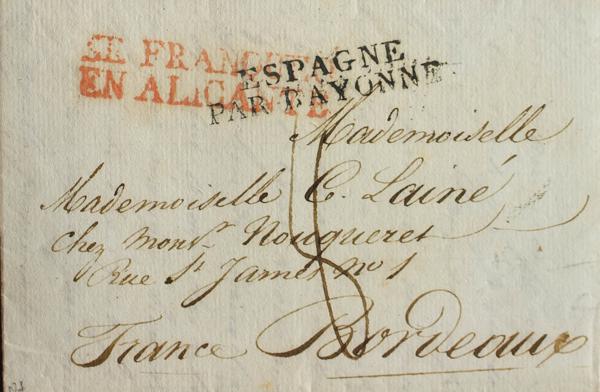 SE FRANQUEÓ
EN ALICANTE
ESPAGNE
PAR BAYONNE
Mademoiselle
Mademoiselle C. Lainé
Chez Monsr. Nouqueret
Rue St. James no 1
France Bordeaux